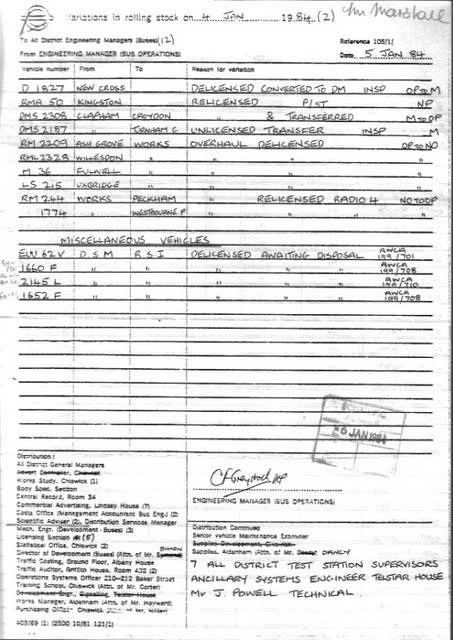 Variations in rolling stock on 4 JAN 1984 (2) Mr Marshall
To All District Engineering Managers (Buses) (12) Reference 105/1/
From ENGINEERING MANAGER (BUS OPERATIONS) Date 5 JAN 84
Vehicle number From To Reason for variation
D 1827 NEW CROSS DELICENSED CONVERTED TO DM INSP OP TO M
RMA 50 KINGSTON RELICENSED P/ST NP
DMS 2308 CLAPHAM CROYDON " & TRANSFERRED M TO OP
DMS 2187 " TURNHAM G UNLICENSED TRANSFER INSP M
RM 2209 ASH GROVE WORKS OVERHAUL DELICENSED OP TO NO
RML 2328 WILLESDON " " " "
M 36 FULWELL " " " "
LS 215 UXBRIDGE " " " "
RM 244 WORKS PECKHAM " RELICENSED RADIO 4 NO TO OP
1774 " WESTBOURNE P " " " "
MISCELLANEOUS VEHICLES
EUV 62V D.S.M R.S.I DELICENSED AWAITING DISPOSAL AWCA 199/701
1660 F " " " " " AWCA 199/708
2145 L " " " " " AWCA 199/710
1652 F " " " " " AWCA 199/708
6 JAN 1984
Distribution:
All District General Managers
Advert Controller, Chiswick
Works Study, Chiswick (1)
Body Spec. Section
Central Record, Room 34
Commercial Advertising, Lindsey House (7)
Costs Office (Management Accountant Bus Eng.) (2)
Scientific Adviser (2), Distribution Services Manager
Mech. Engr. (Development - Buses) (3)
Licensing Section (5)
Statistical Office, Chiswick (2)
Director of Development (Buses) (Attn. of Mr.
Traffic Costing, Ground Floor, Albany House
Traffic Auditor, Griffith House, Room 432 (2)
Operations Systems Officer 210-212 Baker Street
Training School, Chiswick (Attn. of Mr. Carter)
Development Engr., Signalling, Telstar House
Works Manager, Aldenham (Attn. of Mr. Hayward)
Purchasing Office, Chiswick (Attn. of Mr.
403/69 (1) (2500 10/81 121/1)
ENGINEERING MANAGER (BUS OPERATIONS)
Distribution Continued
Senior Vehicle Maintenance Examiner
Supplies Development, Chiswick
Supplies, Aldenham (Attn. of Mr. DANCY
7 ALL DISTRICT TEST STATION SUPERVISORS
ANCILLARY SYSTEMS ENGINEER TELSTAR HOUSE
Mr J. POWELL TECHNICAL.